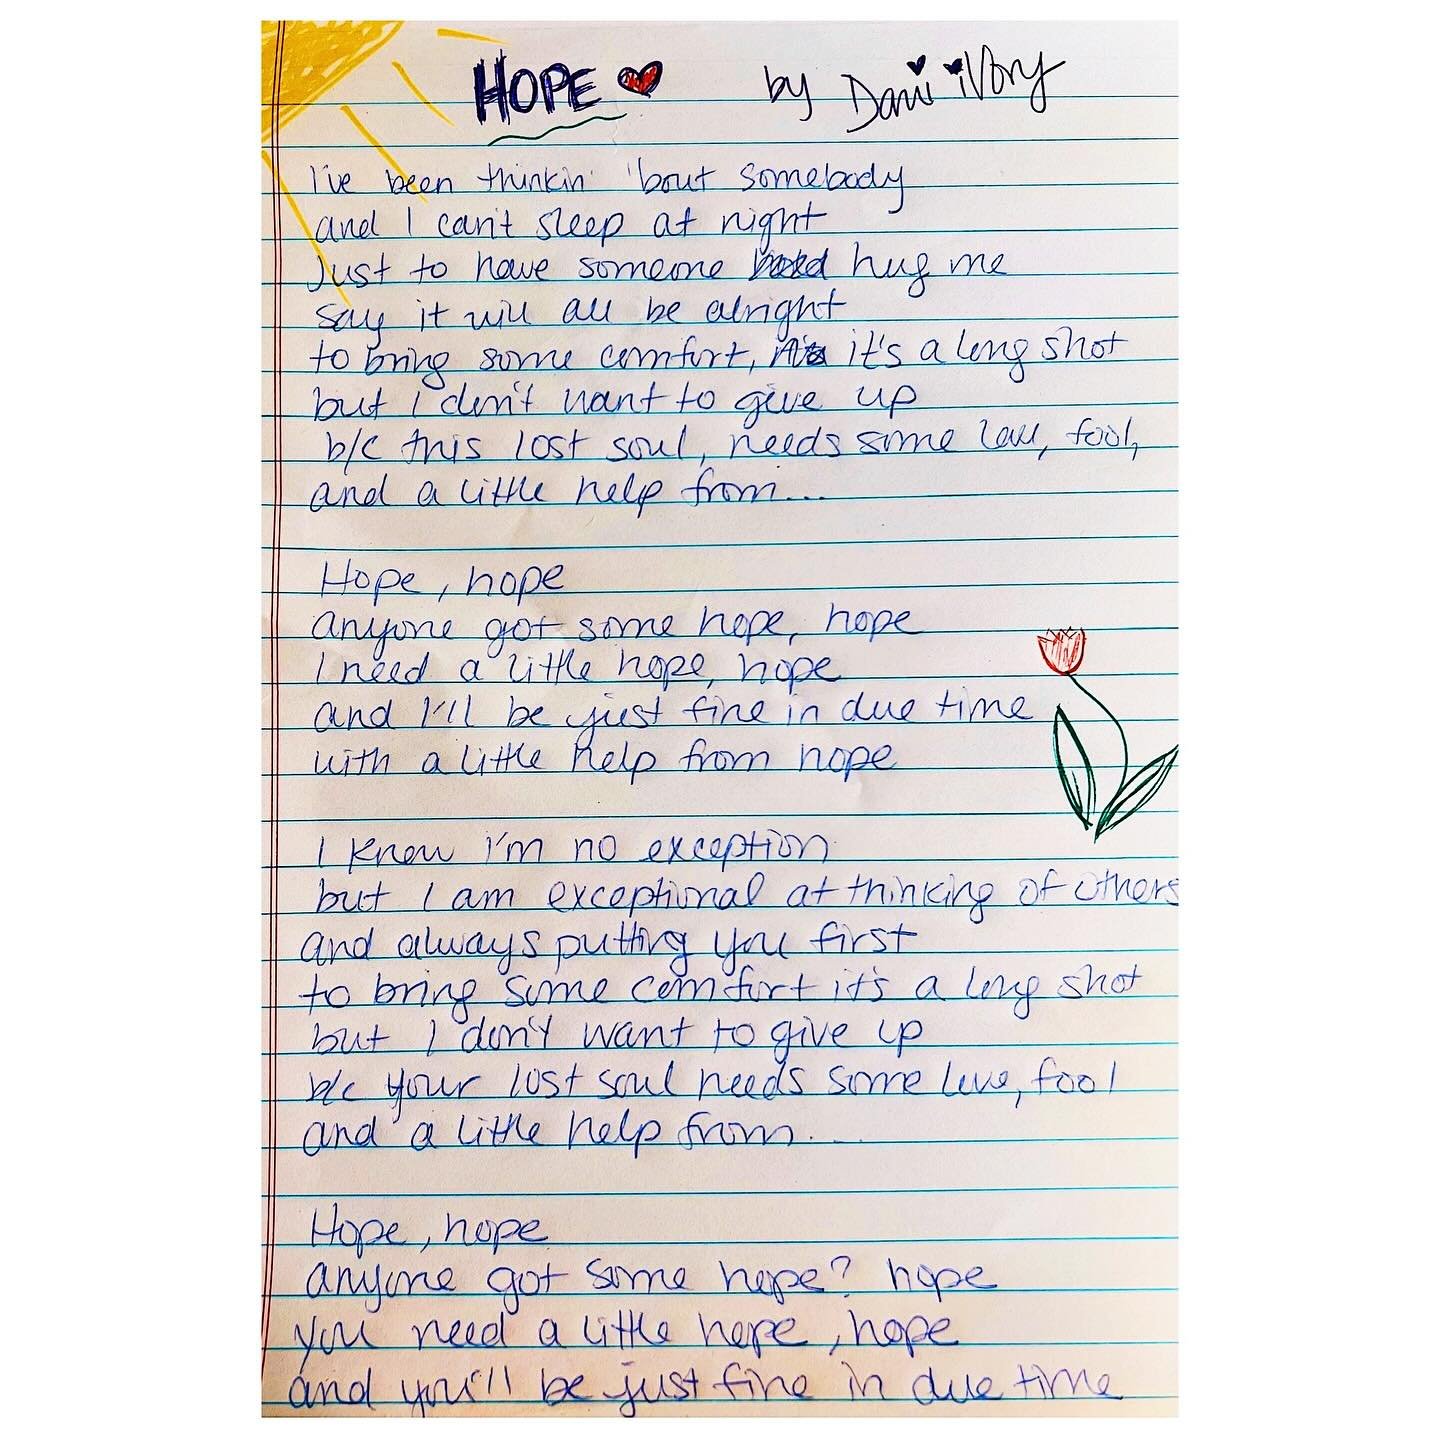 HOPE by Dani iVory
I've been thinkin' 'bout somebody
and I can't sleep at night
Just to have someone hug me
say it will all be alright
to bring some comfort, it's a long shot
but I don't want to give up
b/c this lost soul, needs some love, fool,
and a little help from...
Hope, hope
anyone got some hope, hope
I need a little hope, hope
and I'll be just fine in due time
with a little help from hope
I know I'm no exception
but I am exceptional at thinking of others
and always putting you first
to bring some comfort it's a long shot
but I don't want to give up
b/c your lost soul needs some love, fool
and a little help from....
Hope, hope
anyone got some hope? hope
you need a little hope, hope
and you'll be just fine in due time